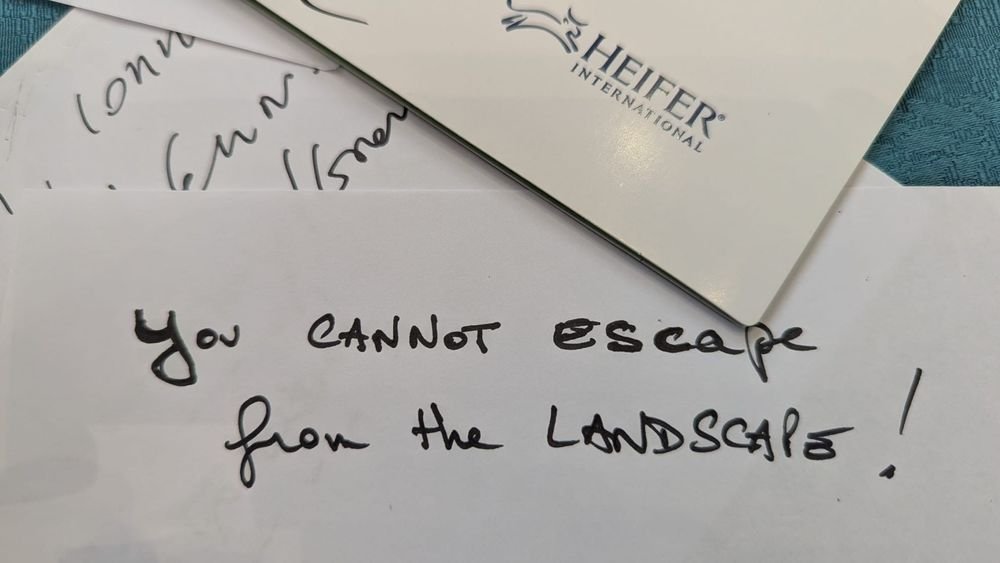 HEIFER®
INTERNATIONAL
You CANNOT ESCape
from the LANDSCAPE!